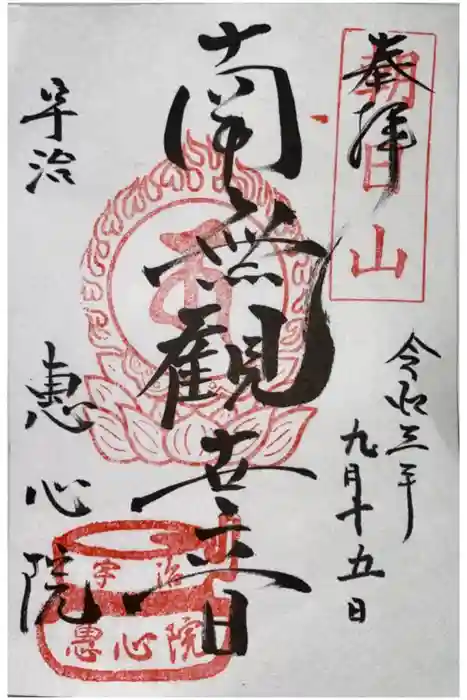 奉拝
朝日山
令和三年
九月十五日
南無觀世音
宇治
恵心院
宇治
惠心院